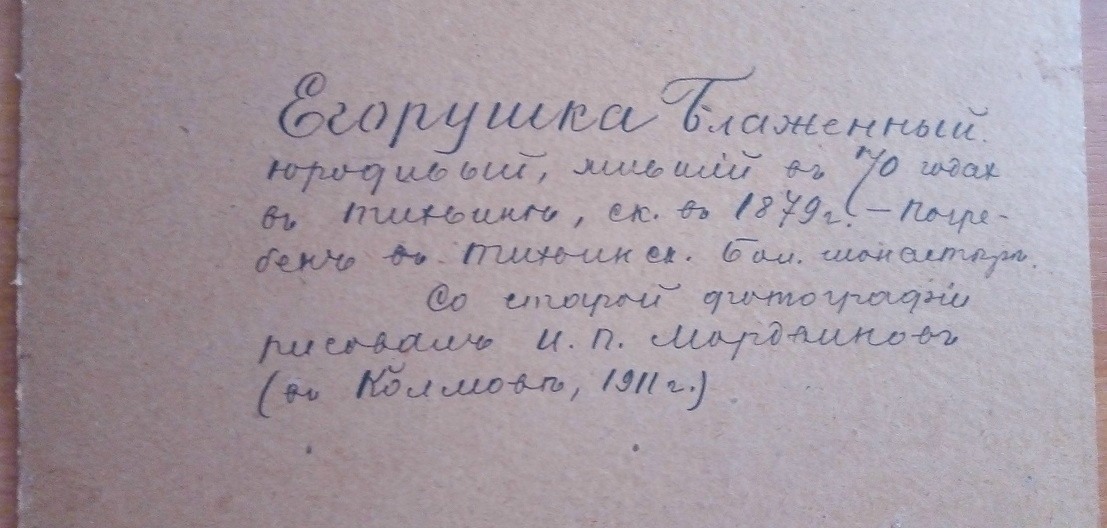 Егорушка Блаженный.
юродивый, жившій въ 70 годах
въ Тихвинѣ, ск. въ 1879 г. – Погре-
бенъ въ Тихвинск. Бол. монастырѣ.
Со старой фотографіи
рисовалъ И. П. Мордвиновъ
(въ Колмовѣ, 1911 г.)